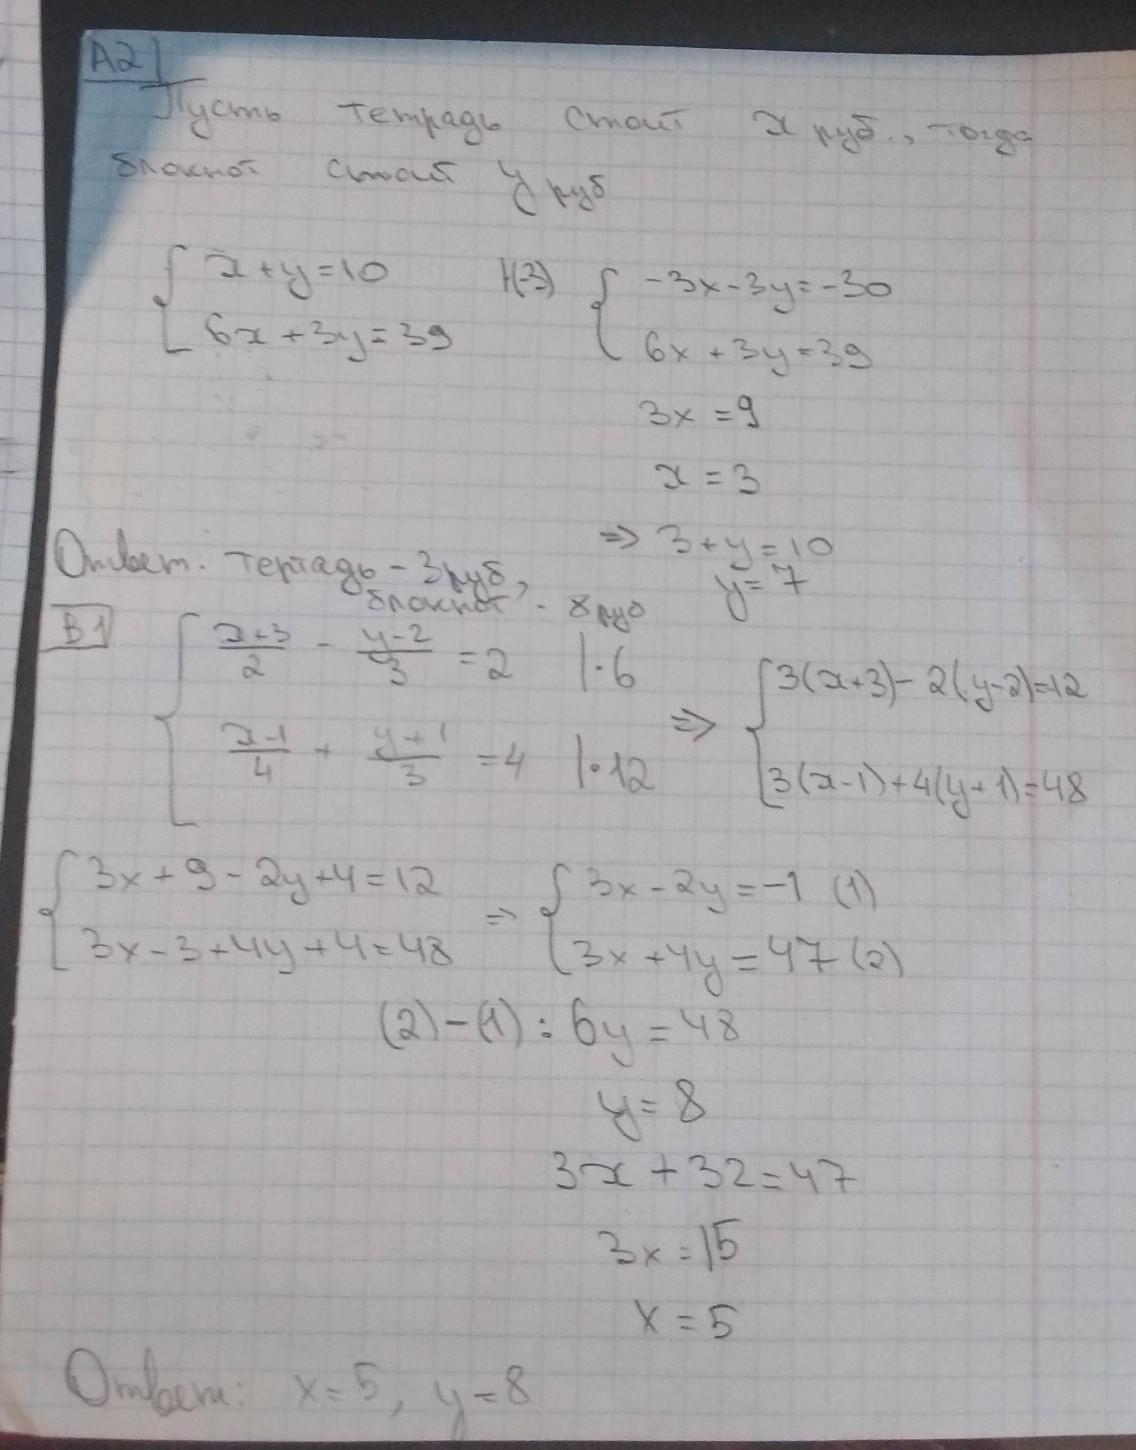 А2
Пусть тетрадь стоит x руб., тогда
блокнот стоит y руб
{ x+y=10 |·(-3) { -3x-3y=-30
{ 6x+3y=39 { 6x+3y=39
3x=9
x=3
=> 3+y=10
y=7
Ответ: тетрадь - 3 руб,
блокнот - 8 руб
В1
{ (x+3)/2 - (y-2)/3 = 2 |·6 => { 3(x+3)-2(y-2)=12
{ (x-1)/4 + (y+1)/3 = 4 |·12 { 3(x-1)+4(y+1)=48
{ 3x+9-2y+4=12 => { 3x-2y=-1 (1)
{ 3x-3+4y+4=48 { 3x+4y=47 (2)
(2)-(1): 6y=48
y=8
3x+32=47
3x=15
x=5
Ответ: x=5, y=8